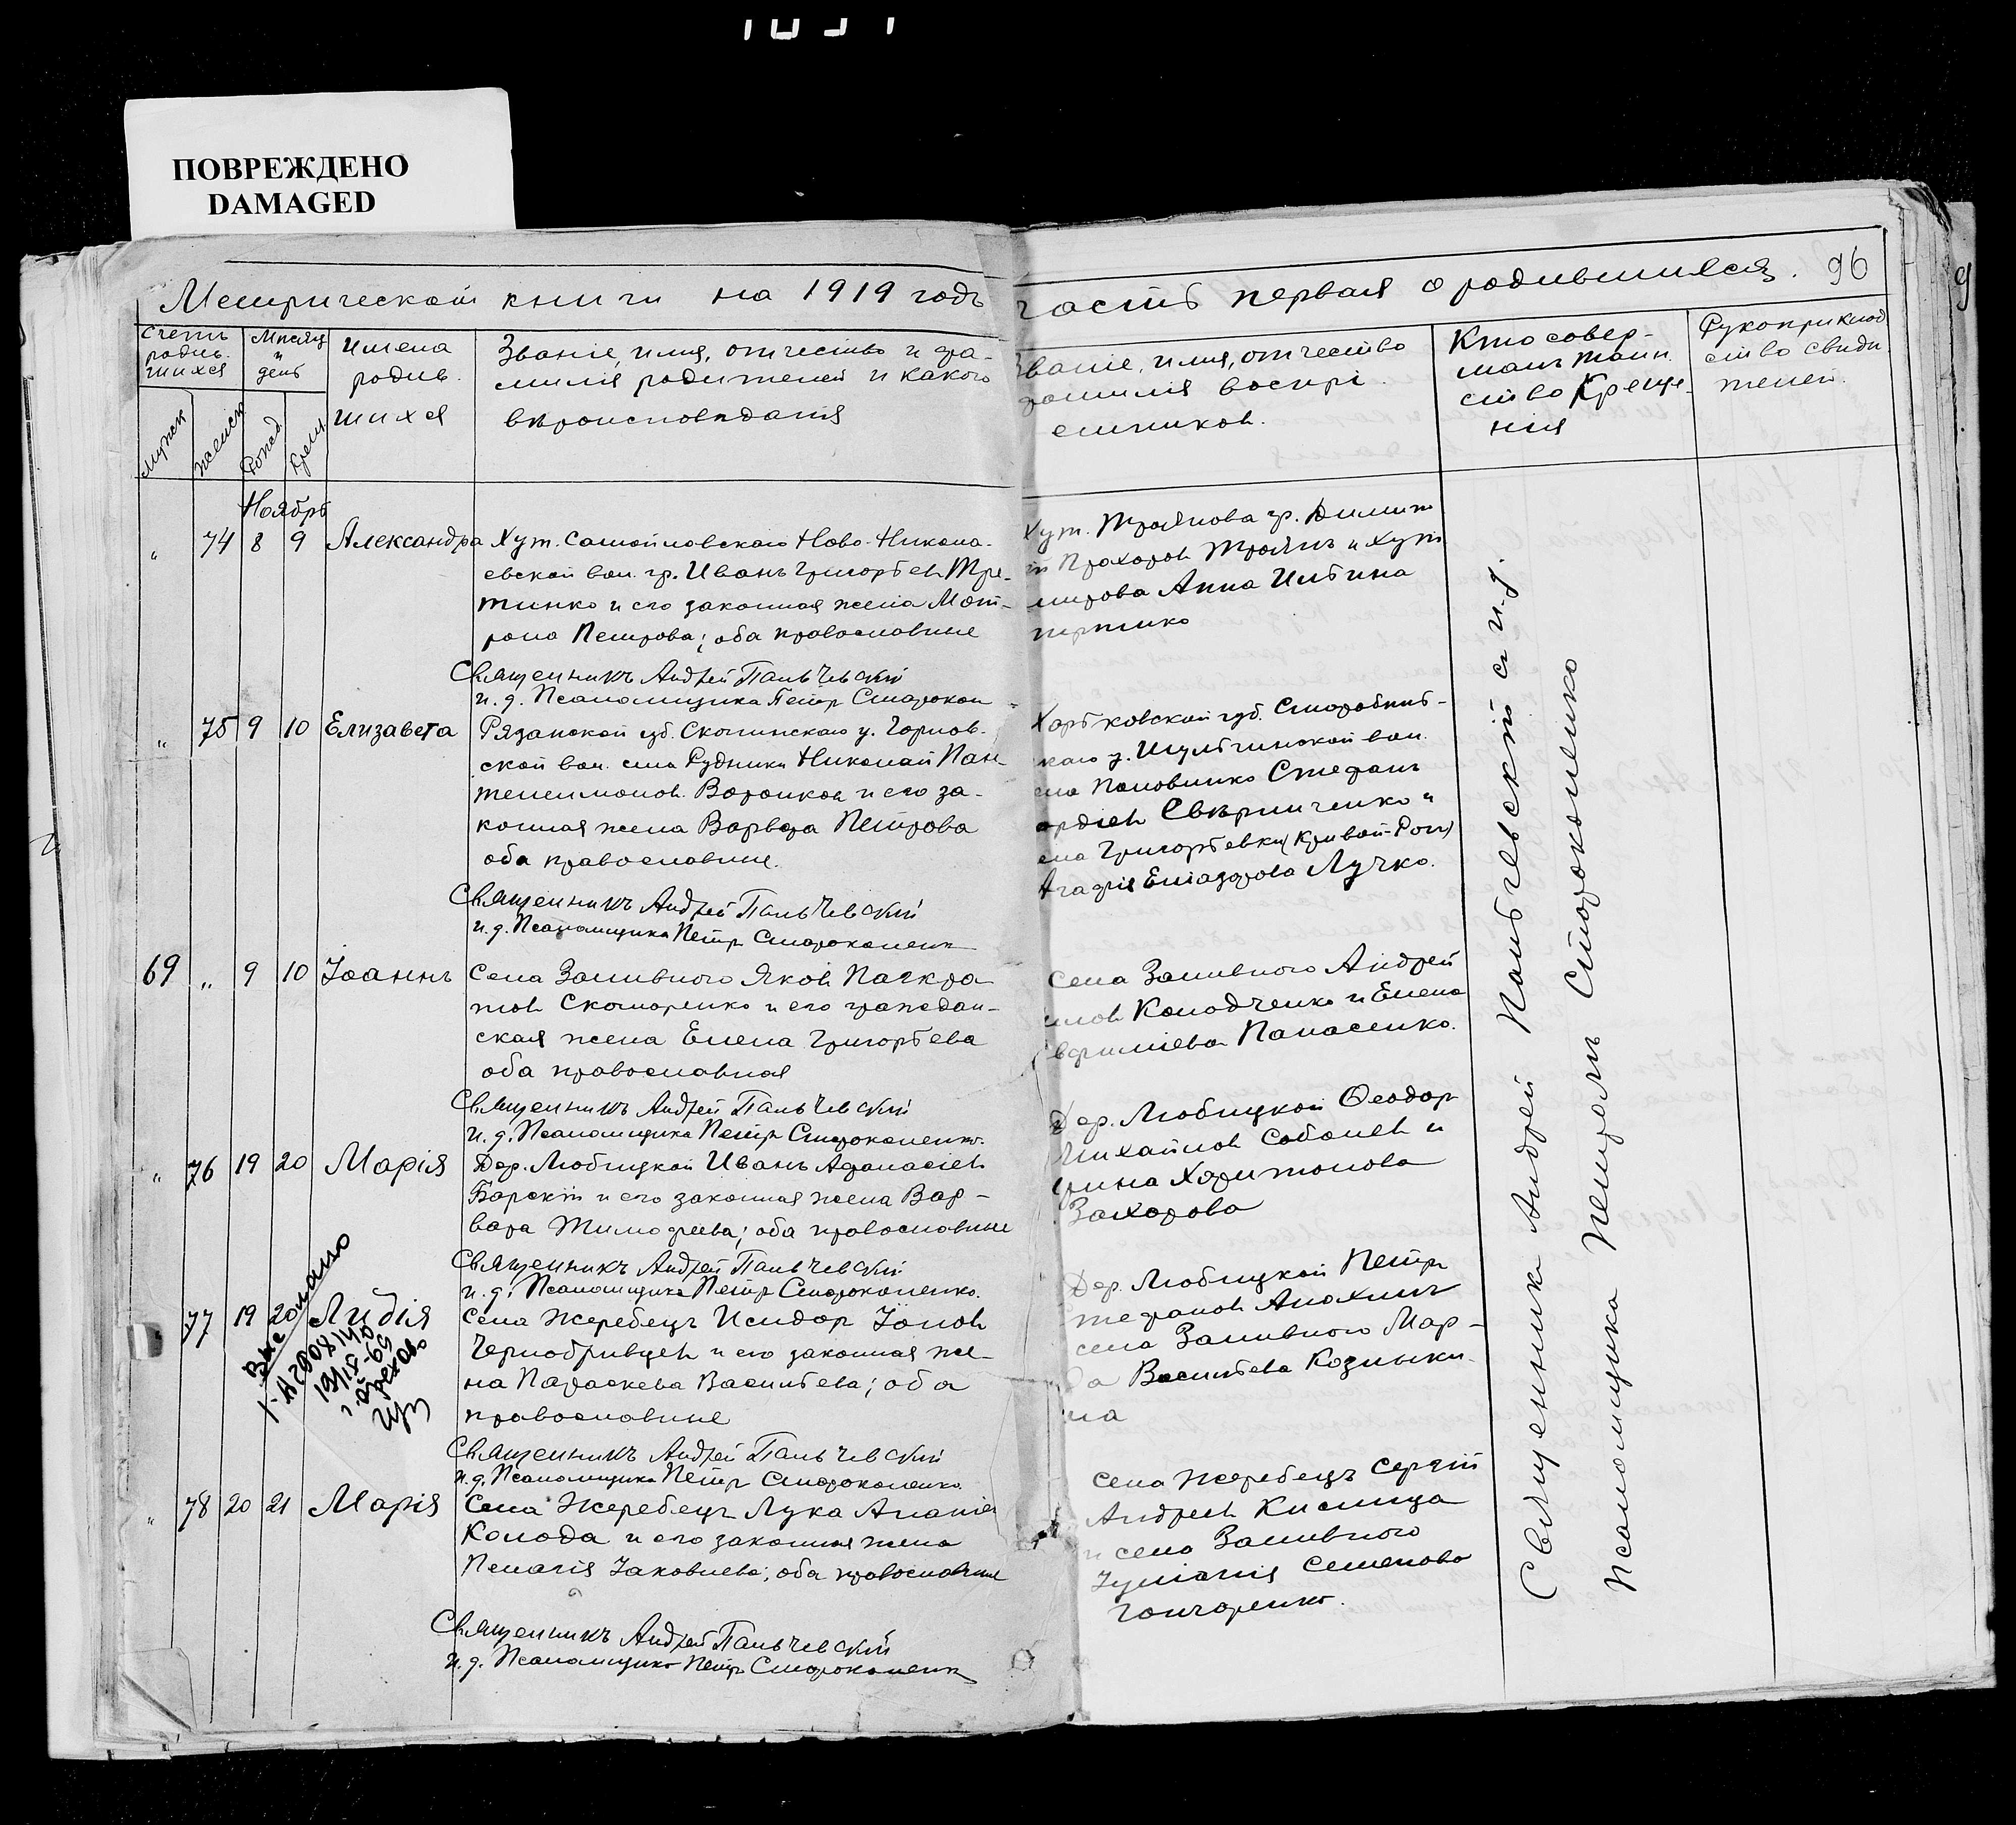 ПОВРЕЖДЕНО
DAMAGED
Метрической книги на 1919 годъ
часть первая о родившихся. 96
Счетъ родив-шихся
Мѣсяц и день
Имена родив. шихся
Званіе, имя, отчество и фа-
милія родителей и какого
вѣроисповѣданія
Званіе, имя, отчество
фамилія воспрі
емников.
Кто совер-
шалъ таин
ство Креще-
нія
Рукоприклад
ство свидѣ
телей.
Мужск
Женск
Рожд.
Крещ.
Ноябрь
" 74 8 9 Александра
Хут. Самойловскаго Ново-Никола-
евской вол. гр. Иванъ Григорьев Тре-
тинко и его законная жена Мат-
рона Петрова; оба православные
Священникъ Андрей Пальчевскій
и. д. Псаломщика Петр Старокон
Хут. Троянова гр. Димит
ій Прохоров Троянъ и Хут
Анна Ильина
" 75 9 10 Елизавета
Рязанской губ. Скопинскаго у. Горлов-
ской вол. села Рудники Николай Пан
телеимонов. Воронков и его за-
конная жена Варвара Петрова
оба православные.
Священникъ Андрей Пальчевскій
и. д. Псаломщика Петр Старокопенк
Харьковской губ. Старобѣль-
скаго у. Шульгинской вол.
ела Половинко Стефанъ
ордіев Свѣринченко и
ела Григорьевки (Кривой-Рог)
Агафія Еліазарова Лучко.
69 " 9 10 Іоаннъ
Села Заливного Яков Панкра
тов Скоморенко и его граждан-
ская жена Елена Григорьева
оба православная
Священникъ Андрей Пальчевскій
и. д. Псаломщика Петр Старокопенко.
Села Заливного Андрей
Колодченко и Елена
вфиміева Панасенко.
" 76 19 20 Марія
Дер. Любицкой Иванъ Афанасіев
Барскій и его законная жена Вар-
вара Тимофеева; оба православные
Священникъ Андрей Пальчевскій
и. д. Псаломщика Петр Старокопенко.
Дер. Любицкой Ѳеодор
Михайлов Соболев и
рина Харитонова
Захарова
77 19 20 Лидія
Села Жеребецъ Исидор Іонов
Чернобривцев и его законная же-
на Параскева Васильева; оба
православные
Священникъ Андрей Пальчевскій
и. д. Псаломщика Петр Старокопенко.
Дер. Любицкой Петр
тефанов Анохинъ
села Заливного Мар-
а Васильева Козлыки-
на
19/IX-69
г. Орехов
" 78 20 21 Марія
Села Жеребецъ Лука Ананіев
Колода и его законная жена
Пелагія Іаковлева; оба православные
Священникъ Андрей Пальчевскій
и. д. Псаломщика Петр Старокопенк
Села Жеребецъ Сергій
Андреев Кислица
и села Заливного
Іуліанія Семенова
Гончаренко.
Священникъ Андрей Пальчевскій и и. д.
Псаломщика Петръ Старокопенко